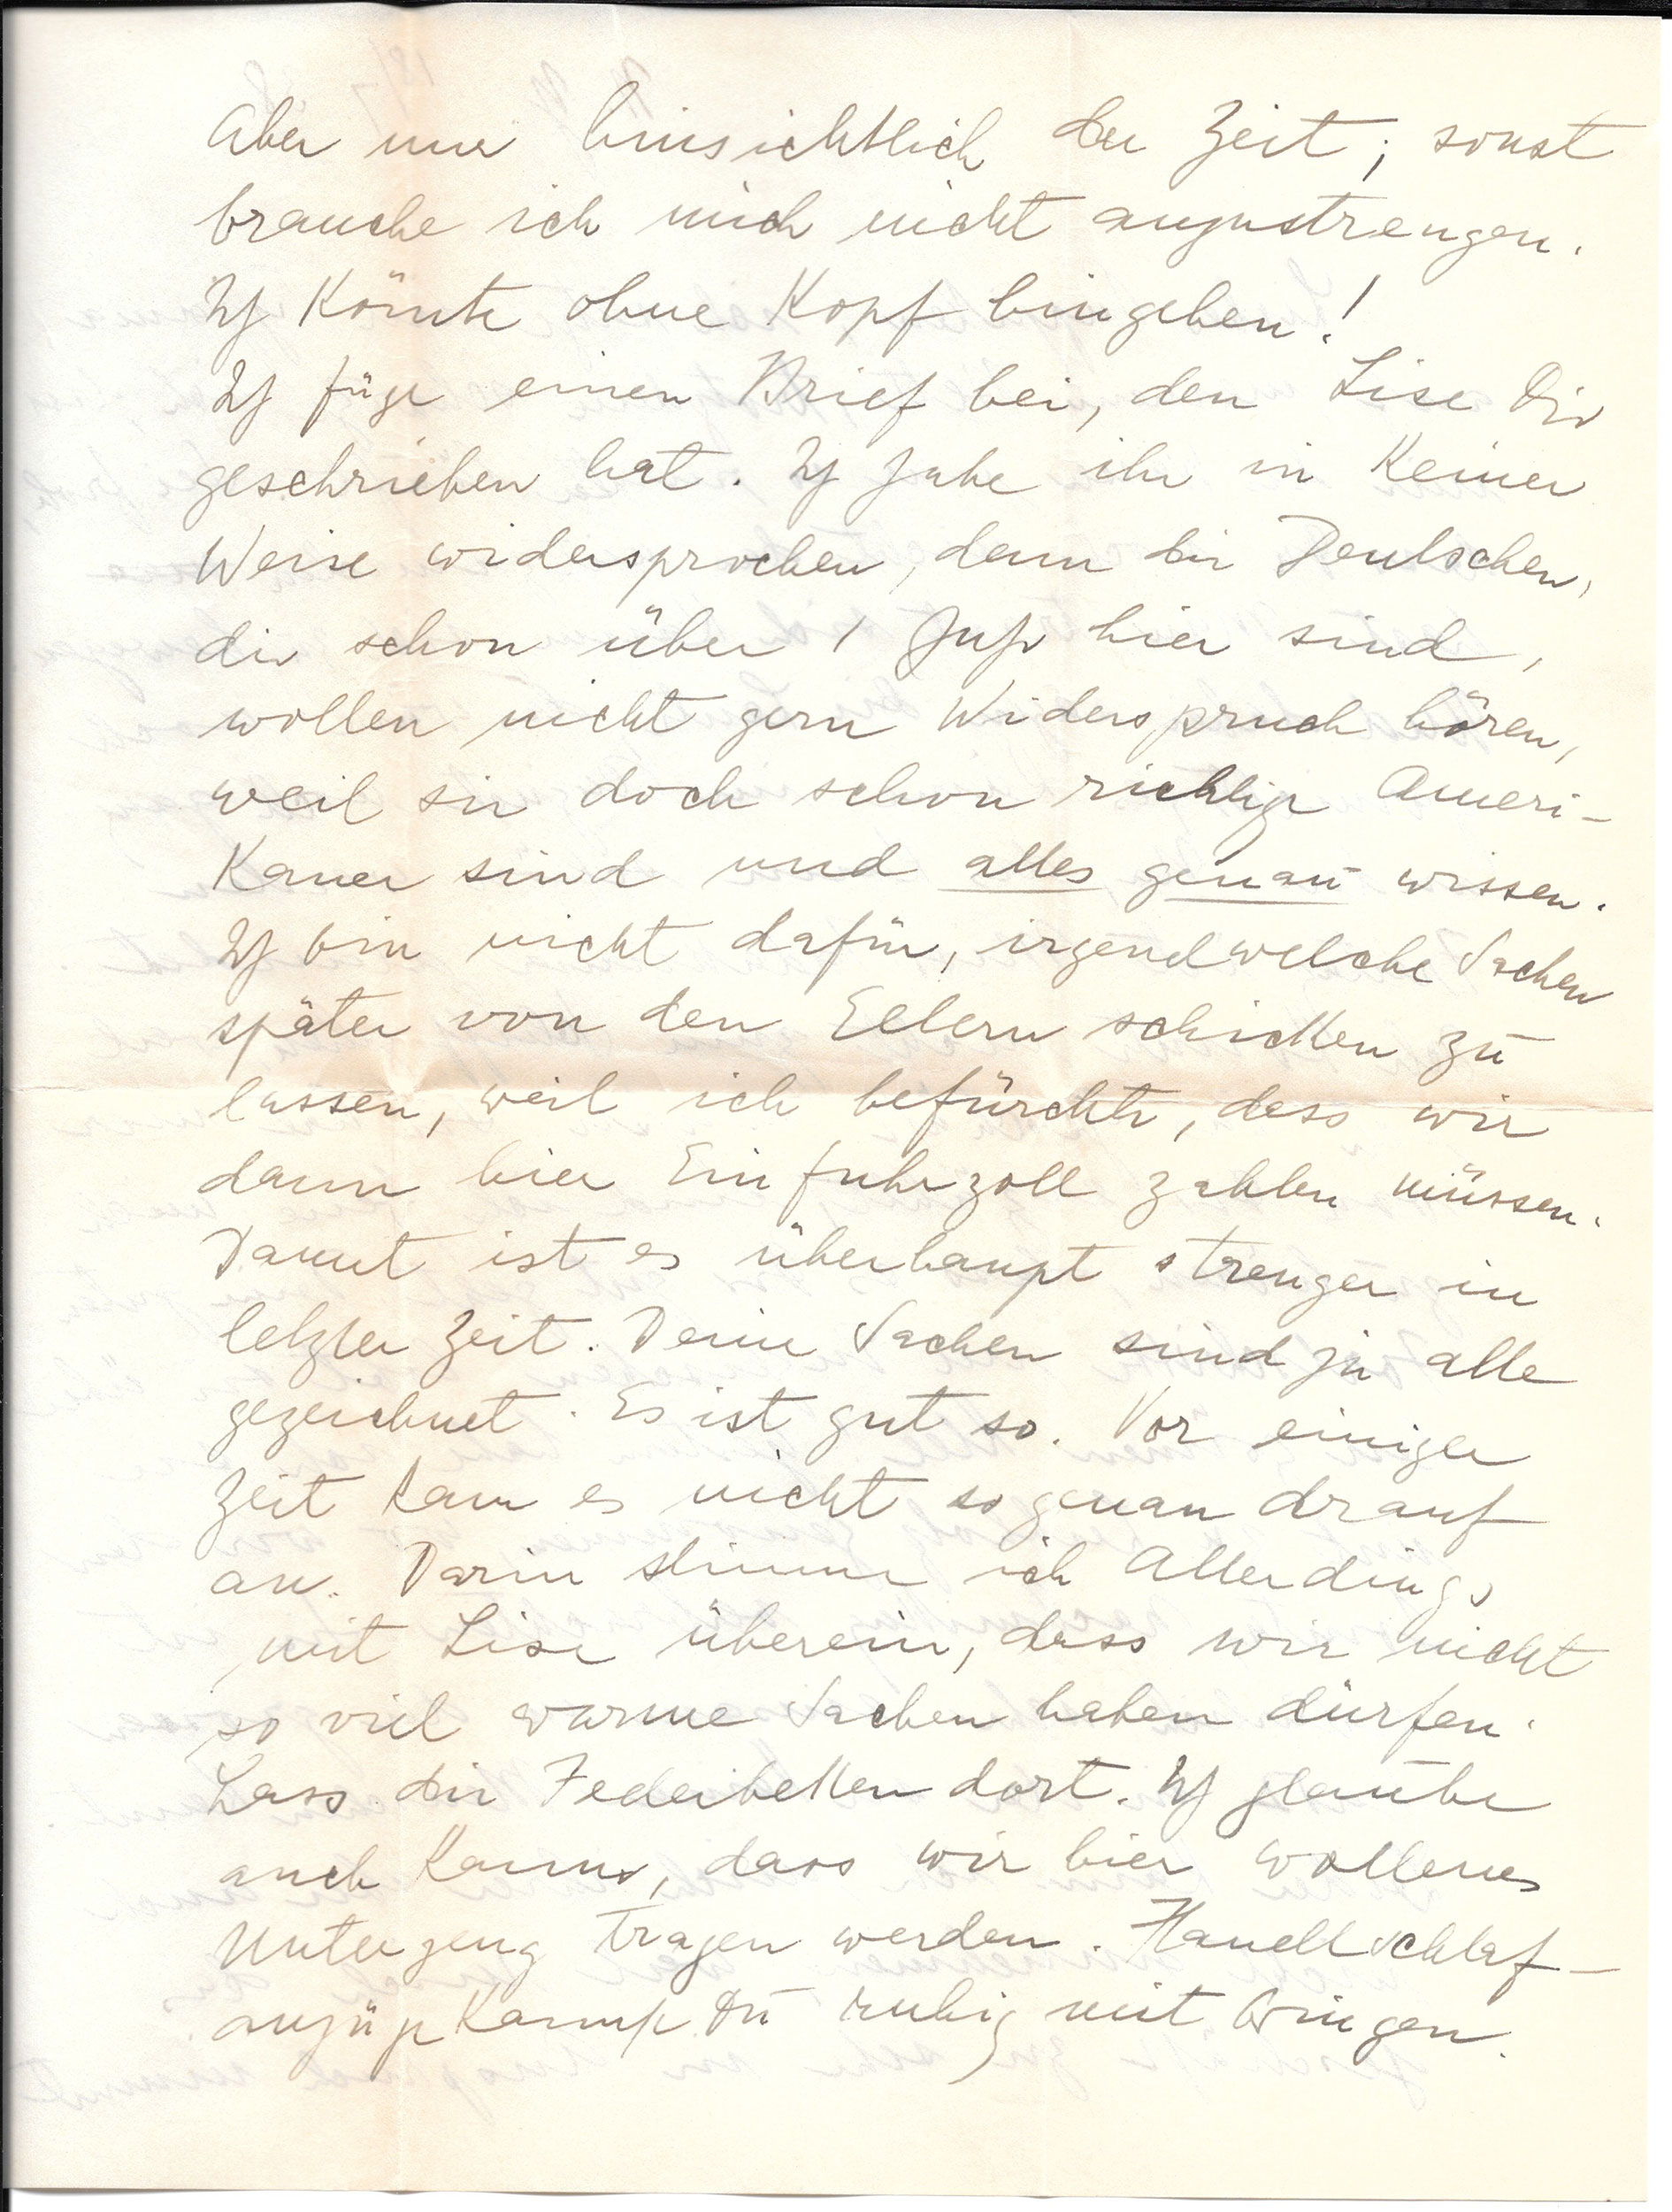 Aber nur hinsichtlich der Zeit; sonst
brauche ich mich nicht anzustrengen.
Ich könnte ohne Kopf hingehen!
Ich füge einen Brief bei, den Lise Dir
geschrieben hat. Ich habe ihr in keiner
Weise widersprochen, denn die Deutschen,
die schon über 1 Jahr hier sind,
wollen nicht gern Widerspruch hören,
weil sie doch schon richtige Ameri-
kaner sind und alles genau wissen.
Ich bin nicht dafür, irgendwelche Sachen
später von den Eltern schicken zu
lassen, weil ich befürchte, dass wir
dann hier Einfuhrzoll zahlen müssen.
Damit ist es überhaupt strenger in
letzter Zeit. Deine Sachen sind ja alle
gezeichnet. Es ist gut so. Vor einiger
Zeit kam es nicht so genau drauf
an. Darin stimme ich Allerdings
mit Lise überein, dass wir nicht
so viel warme Sachen haben dürfen.
Lass die Federbetten dort. Ich glaube
auch kaum, dass wir hier wollenes
Unterzeug tragen werden. Flanellschlaf-
anzüge kannst Du ruhig mit bringen.